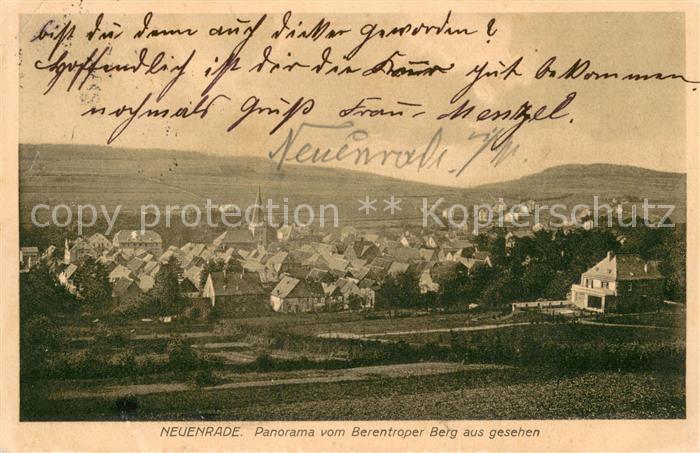 bist du denn auch dicker geworden?
Hoffendlich ist dir die Kur gut bekommen.
nochmals Gruß Frau Menzel.
Neuenrade i/W.
copy protection ** Kopierschutz
NEUENRADE. Panorama vom Berentroper Berg aus gesehen